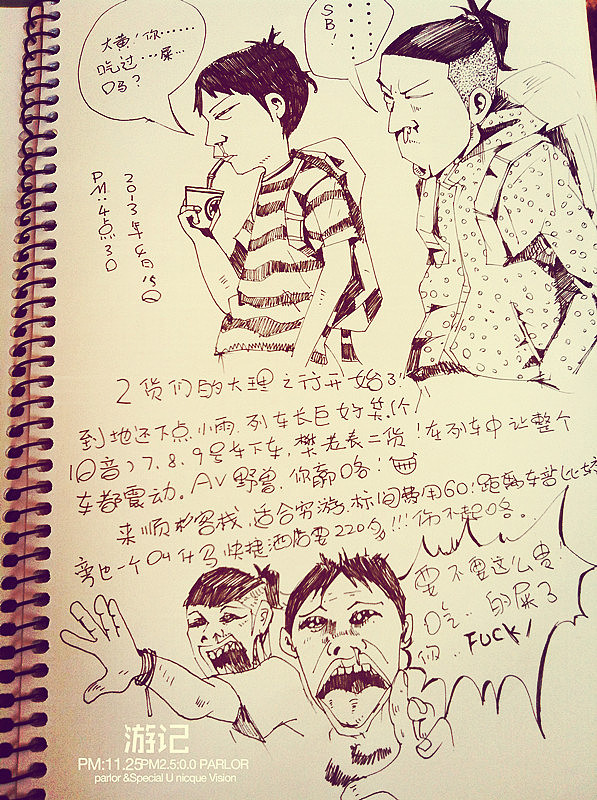 大黄！你……
吃过…屎…
吗？
SB！……
2013年4月15日
PM：4点30
2货们的大理之行开始了！
到地还下点小雨，列车长巨好笑（
旧音）7.8.9号车下车，樊老表二货！在列车中让整个
车都震动。AV野兽，你霸哈！
来顺 客栈，适合穷游，标间费用60！距离车站比较
旁边一个 快捷酒店要220多！！！伤不起哈。
要不要这么贵！
吃..的屎了
你.. FUCK！
游记
PM:11.25PM2.5:0.0 PARLOR
parlor &Special U nicque Vision